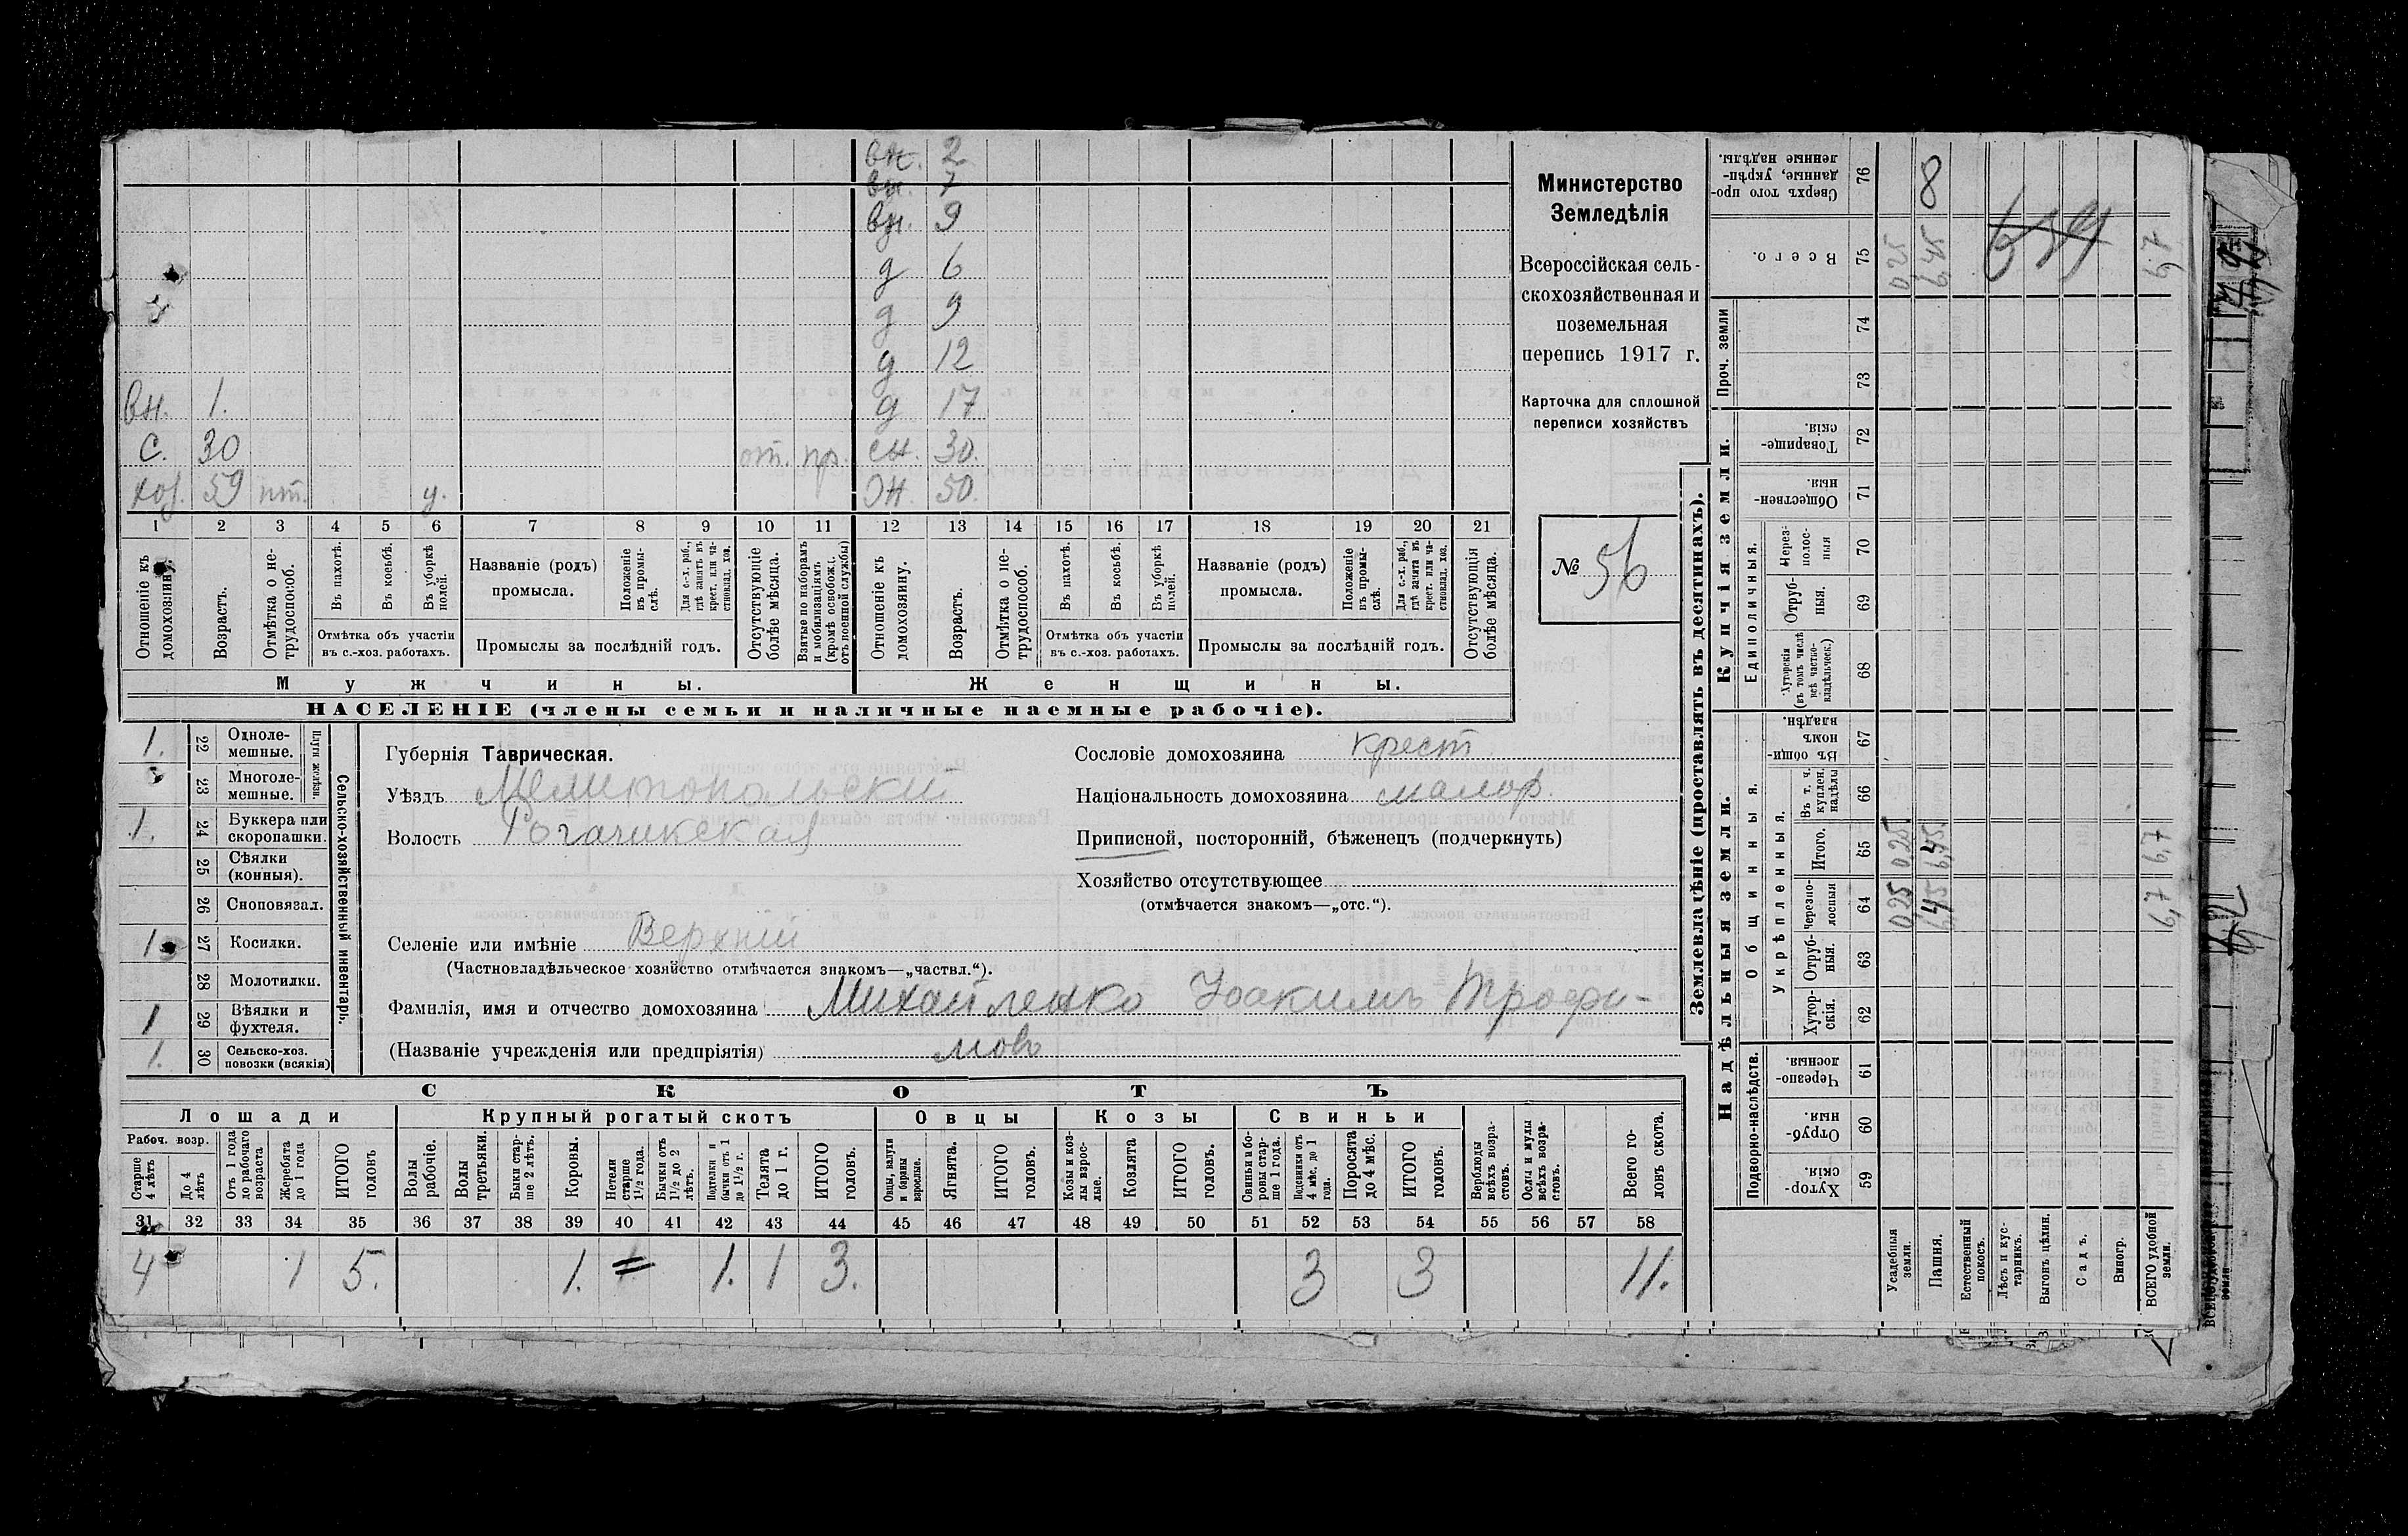 вн. 2
вн. 7
вн. 9
д 6
д 9
д 12
вн. 1. д 17
с. 30 от. пр. сн. 30.
хоз. 59 пт. у. Ж. 50.
1 2 3 4 5 6 7 8 9 10 11 12 13 14 15 16 17 18 19 20 21
Отношеніе къ домохозяину.
Возрастъ.
Отмѣтка о не-
трудоспособ.
Въ пахотѣ.
Въ косьбѣ.
Въ уборкѣ
полей.
Отмѣтка объ участіи
въ с.-хоз. работахъ.
Названіе (родъ)
промысла.
Положеніе
въ промы-
слѣ.
Для с.-х. раб.,
гдѣ занятъ въ
крест. или ча-
стновлад. хоз.
Промыслы за послѣдній годъ.
Отсутствующіе
болѣе мѣсяца.
Взятые по наборамъ
и мобилизаціямъ
(кромѣ освобожд.
отъ военной службы)
Отношеніе къ
домохозяину.
Возрастъ.
Отмѣтка о не-
трудоспособ.
Въ пахотѣ.
Въ косьбѣ.
Въ уборкѣ
полей.
Отмѣтка объ участіи
въ с.-хоз. работахъ.
Названіе (родъ)
промысла.
Положеніе
въ промы-
слѣ.
Для с.-х. раб.,
гдѣ занята въ
крест. или ча-
стновлад. хоз.
Промыслы за послѣдній годъ.
Отсутствующія
болѣе мѣсяца.
Мужчины.
Женщины.
НАСЕЛЕНІЕ (члены семьи и наличные наемные рабочіе).
Министерство
Земледѣлія
Всероссійская сель-
скохозяйственная и
поземельная
перепись 1917 г.
Карточка для сплошной
переписи хозяйствъ
№ 56
1. 22 Одноле-
мешные.
23 Многоле-
мешные.
Плуги желѣзн.
1. 24 Буккера или
скоропашки.
25 Сѣялки
(конныя).
26 Сноповязал.
1 27 Косилки.
28 Молотилки.
1 29 Вѣялки и
фухтеля.
1. 30 Сельско-хоз.
повозки (всякія)
Сельско-хозяйственный инвентарь.
Губернія Таврическая.
Уѣздъ Мелитопольскій
Волость Рогачикская
Селеніе или имѣніе Верхній
(Частновладѣльческое хозяйство отмѣчается знакомъ—„частвл.“).
Фамилія, имя и отчество домохозяина Михайленко Іоакимъ Трофи-
(Названіе учрежденія или предпріятія) мовъ
Сословіе домохозяина крест
Національность домохозяина малор.
Приписной, посторонній, бѣженецъ (подчеркнуть)
Хозяйство отсутствующее
(отмѣчается знакомъ—„отс.“).
СКОТЪ
Лошади
Крупный рогатый скотъ
Овцы
Козы
Свиньи
Рабоч. возр.
Старше
4 лѣтъ
До 4
лѣтъ
Отъ 1 года
до рабочаго
возраста
Жеребята
до 1 года
ИТОГО
головъ
Волы
рабочіе.
Волы
третьяки.
Быки стар-
ше 2 лѣтъ.
Коровы.
Нетели
старше
1½ года.
Бычки отъ
1½ до 2
лѣтъ.
Подтелки и
бычки отъ 1
до 1½ г.
Телята
до 1 г.
ИТОГО
головъ.
Овцы, валухи
и бараны
взрослые.
Ягнята.
ИТОГО
головъ.
Козы и коз-
лы взрос-
лые.
Козлята
ИТОГО
головъ.
Свиньи и бо-
ровы стар-
ше 1 года.
Подсвинки отъ
4 мѣс. до 1
года.
Поросята
до 4 мѣс.
ИТОГО
головъ.
Верблюды
всѣхъ возра-
стовъ.
Ослы и мулы
всѣхъ возра-
стовъ.
Всего го-
ловъ скота.
31 32 33 34 35 36 37 38 39 40 41 42 43 44 45 46 47 48 49 50 51 52 53 54 55 56 57 58
4 1 5. 1. 1. 1 3. 3 3 11.
Землевладѣніе (проставлять въ десятинахъ).
Надѣльныя земли.
Купчія земли.
Проч. земли
Подворно-наслѣдств.
Общинныя.
Укрѣпленныя.
Единоличныя.
Хутор-
скія. 59
Отруб-
ныя. 60
Черезпо-
лосныя. 61
Хутор-
скія. 62
Отруб-
ныя. 63
Черезпо-
лосныя 64 0,25 6,45 6,7
Итого. 65 0,25 6,45 6,7
Въ т. ч.
куплен.
надѣлы 66
Въ общин
номъ
владѣн. 67
Хуторскія
(въ томъ числѣ
всѣ частно-
владѣльческ.) 68
Отруб-
ныя. 69
Через-
полос-
ныя 70
Обществен-
ныя. 71
Товарище-
скія. 72
73
74
Всего. 75 0,25 6,45 6,7
Сверхъ того про-
данные, укрѣп-
ленные надѣлы. 76 8
Усадебныя
земли.
Пашня.
Естественный
покосъ.
Лѣсъ и кус-
тарникъ.
Выгонъ цѣлин.
Садъ.
Виногр.
ВСЕГО удобной
земли.